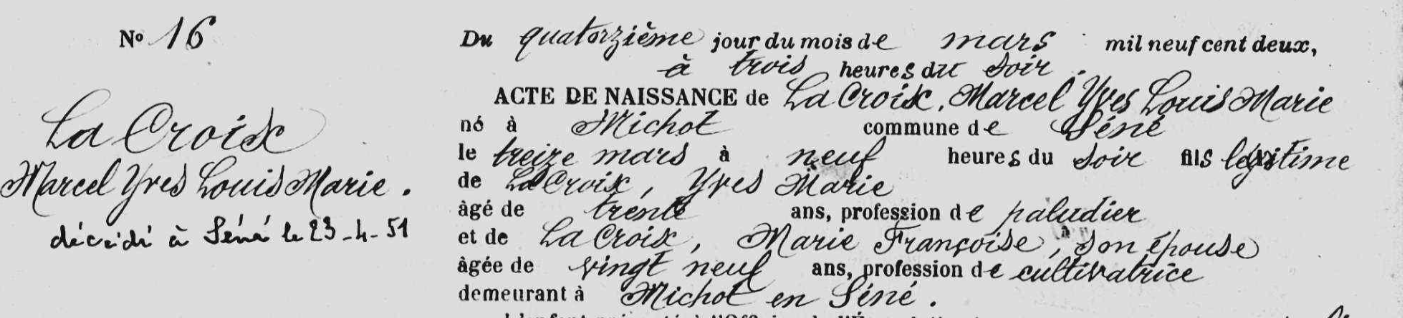 No 16
La Croix
Marcel Yves Louis Marie.
décédé à Séné le 23-4-51
Du quatorzième jour du mois de mars mil neuf cent deux,
à trois heures du soir.
ACTE DE NAISSANCE de La Croix, Marcel Yves Louis Marie
né à Michot commune de Séné
le treize mars à neuf heures du soir fils légitime
de La Croix, Yves Marie
âgé de trente ans, profession de paludier
et de La Croix, Marie Françoise, son épouse
âgée de vingt neuf ans, profession de cultivatrice
demeurant à Michot en Séné.